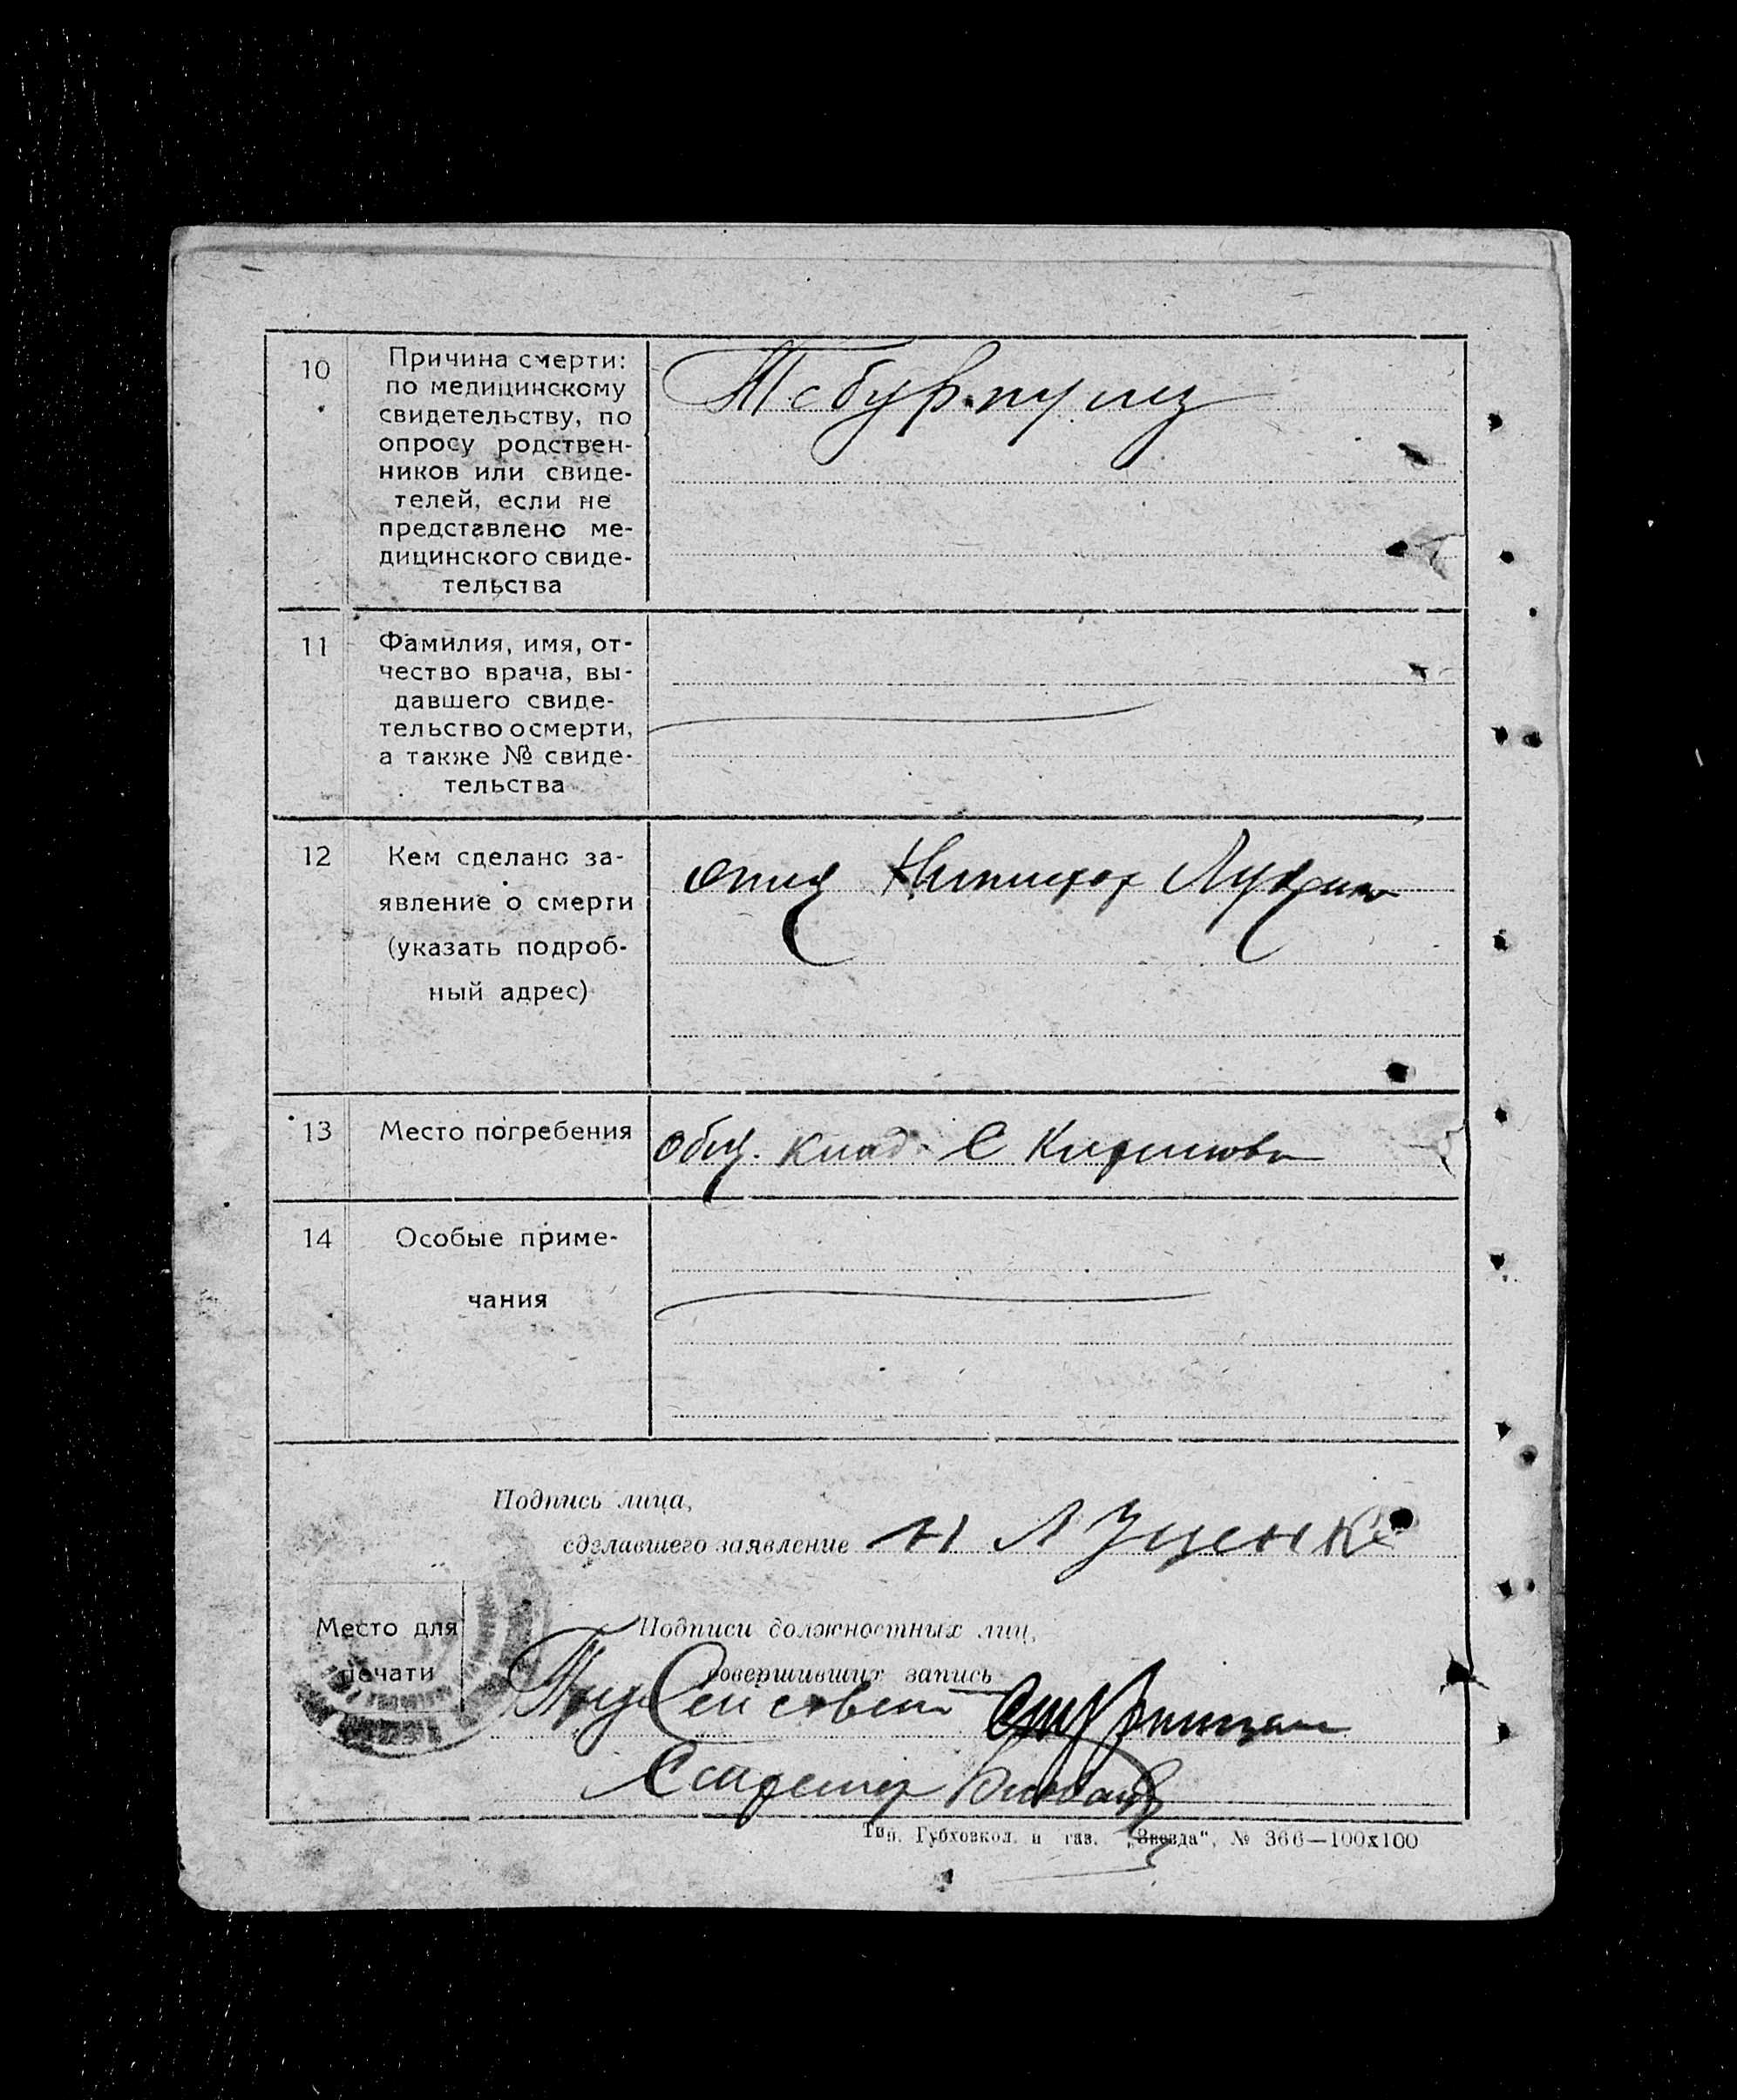 10
Причина смерти:
по медицинскому
свидетельству, по
опросу родствен-
ников или свиде-
телей, если не
представлено ме-
дицинского свиде-
тельства
11
Фамилия, имя, от-
чество врача, вы-
давшего свиде-
тельство о смерти,
а также № свиде-
тельства
12
Кем сделано за-
явление о смерти
(указать подроб-
ный адрес)
отец Никифор
13
Место погребения
Общ. клад. С
14
Особые приме-
чания
Подпись лица,
сделавшего заявление Н Луценко
Место для
печати
Подписи должностных лиц,
совершивших запись
Секретар
Тип. Губховкол. и газ. „Звезда", № 366—100х100